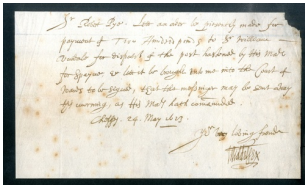 Sr Robert Pye. Let an order be presently made for
payment of Two hundred pounds to Sr William
for of the post by his Mats
for Spayne & let it be brought to me into the Court of
to be signed, that the messenger may be sent away
this evening, as his Maty hath commanded.
Chelsey. 24. May 1623.
yor very loving friend
Middlesex